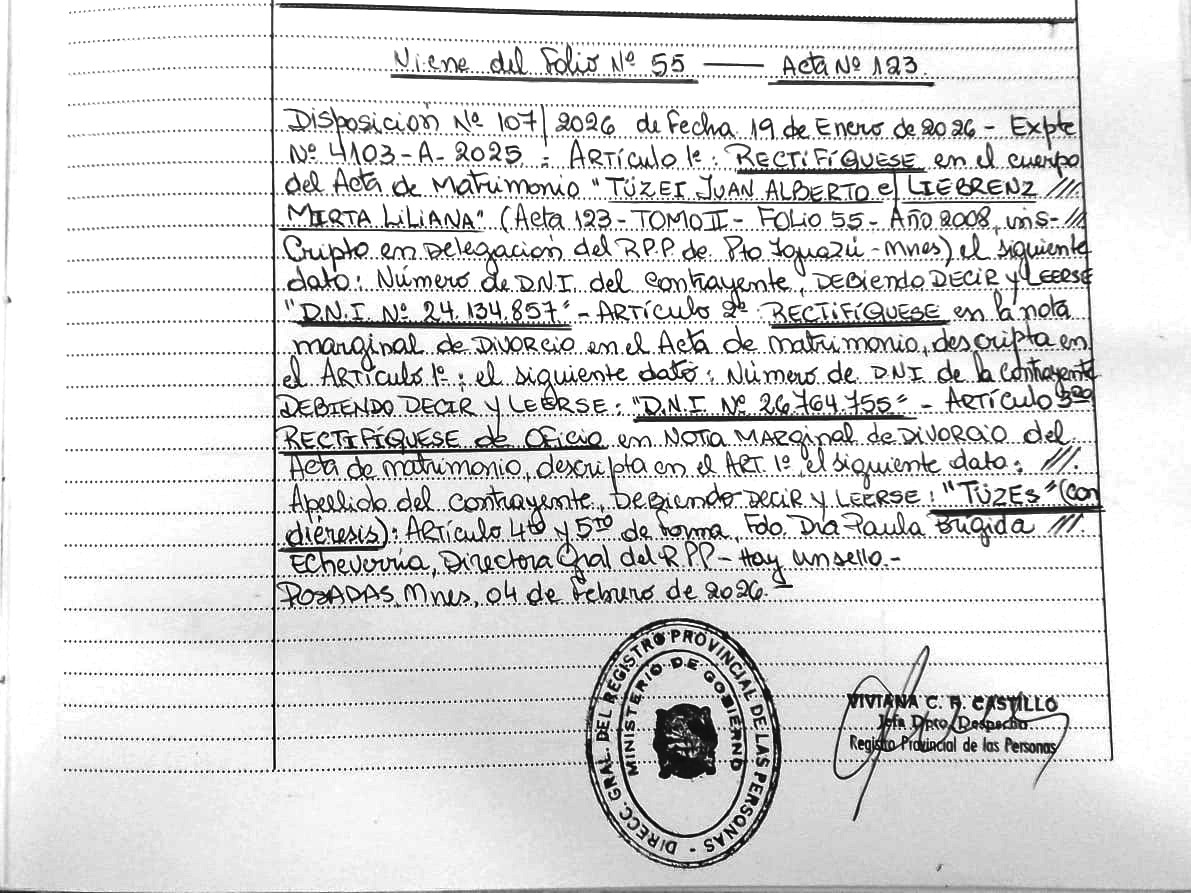 Viene del Folio Nº 55 — Acta Nº 123.
Disposición Nº 107/2026 de Fecha 19 de Enero de 2026 - Expte
Nº 4103-A-2025 - ARTÍCULO 1º: RECTIFÍQUESE en el cuerpo
del Acta de Matrimonio "TÜZEI JUAN ALBERTO e/ LIEBRENZ ///.
MIRTA LILIANA" (Acta 123 - TOMO II - FOLIO 55 - Año 2008, ins- ///
cripto en Delegación del R.P.P. de Pto Iguazú - Mnes) el siguiente
dato: Número de D.N.I. del contrayente, DEBIENDO DECIR y LEERSE
"D.N.I. Nº 24.134.857" - ARTÍCULO 2º: RECTIFÍQUESE en la nota
marginal de DIVORCIO en el Acta de matrimonio, descripta en
el ARTÍCULO 1º; el siguiente dato: Número de D.N.I de la contrayente
DEBIENDO DECIR y LEERSE: "D.N.I. Nº 26.764.755" - ARTÍCULO 3ro
RECTIFÍQUESE de OFICIO en NOTA MARGINAL de DIVORCIO del
Acta de matrimonio, descripta en el ART. 1º, el siguiente dato: ///.
Apellido del contrayente, DEBIENDO DECIR y LEERSE: "TÜZES" (con
diéresis): ARTÍCULO 4to y 5TO de forma, Fdo. Dra Paula Brígida ///.
Echeverría, Directora Gral del RPP - Hay un sello. -
POSADAS, Mnes, 04 de Febrero de 2026. -
DIRECC. GRAL. DEL REGISTRO PROVINCIAL DE LAS PERSONAS -
MINISTERIO DE GOBIERNO
VIVIANA C. R. CASTILLO
Jefa Dpto. Despacho
Registro Provincial de las Personas